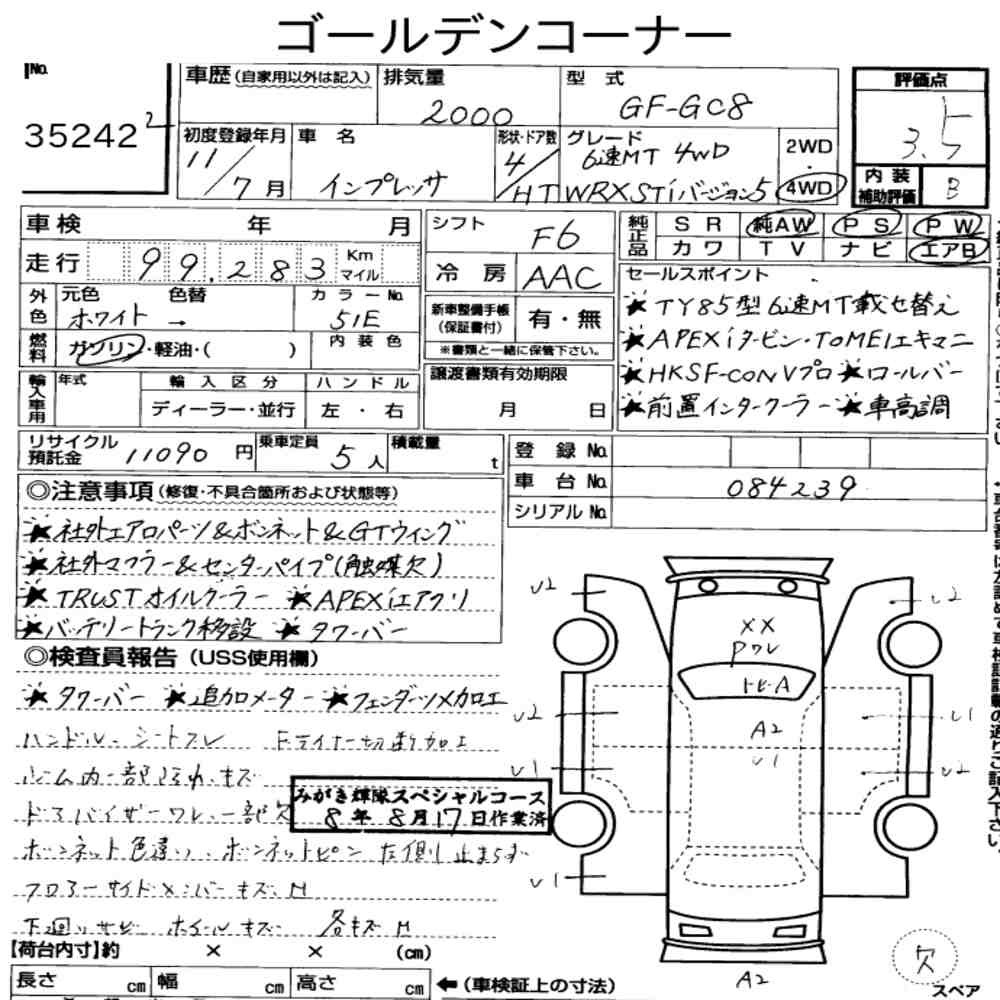 ゴールデンコーナー
No.
35242 2
車歴(自家用以外は記入)
排気量
2000
型式
GF-GC8
評価点
3.5
初度登録年月
11/7月
車名
インプレッサ
形状・ドア数
4/HT
グレード
6速MT 4WD
WRXSTiバージョン5
2WD
4WD
内装
補助評価
B
車検 年 月
シフト
F6
純正品
SR 純AW PS PW
カワ TV ナビ エアB
走行 99,283 Km
マイル
冷房
AAC
セールスポイント
★TY85型6速MT載せ替え
★APEXiタービン・TOMEIエキマニ
★HKSF-CONVプロ★ロールバー
★前置インタークーラー★車高調
外色
元色 色替
ホワイト →
カラーNo.
51E
新車整備手帳
(保証書付)
有・無
※書類と一緒に保管下さい。
燃料
ガソリン・軽油・( )
内装色
輸入車用
年式
輸入区分
ハンドル
ディーラー・並行
左・右
譲渡書類有効期限
月 日
リサイクル
預託金
11090円
乗車定員
5人
積載量
t
登録No.
車台No.
084239
シリアルNo.
◎注意事項(修復・不具合箇所および状態等)
★社外エアロパーツ&ボンネット&GTウィング
★社外マフラー&センターパイプ(触媒欠)
★TRUSTオイルクーラー ★APEXiエアクリ
★バッテリートランク移設 ★タワーバー
◎検査員報告(USS使用欄)
★タワーバー ★追加メーター ★フェンダーツメカロエ
ハンドル、シートスレ Fライナー切断加工
ルーム内一部 キズ
ドアバイザーワレ、一部欠
みがき輝隊スペシャルコース
8年8月17日作業済
ボンネット色違い、ボンネットピン左側止まらず
フロアーサイドメンバーキズ、M
下廻りサビ ホイールキズ 各キズM
【荷台内寸】約 × × (cm)
長さ cm 幅 cm 高さ cm
←(車検証上の寸法)
U2
U2
XX
Pワレ
トビ-A
U2
A2
U1
U1
U1
U2
U1
A2
欠
スペア